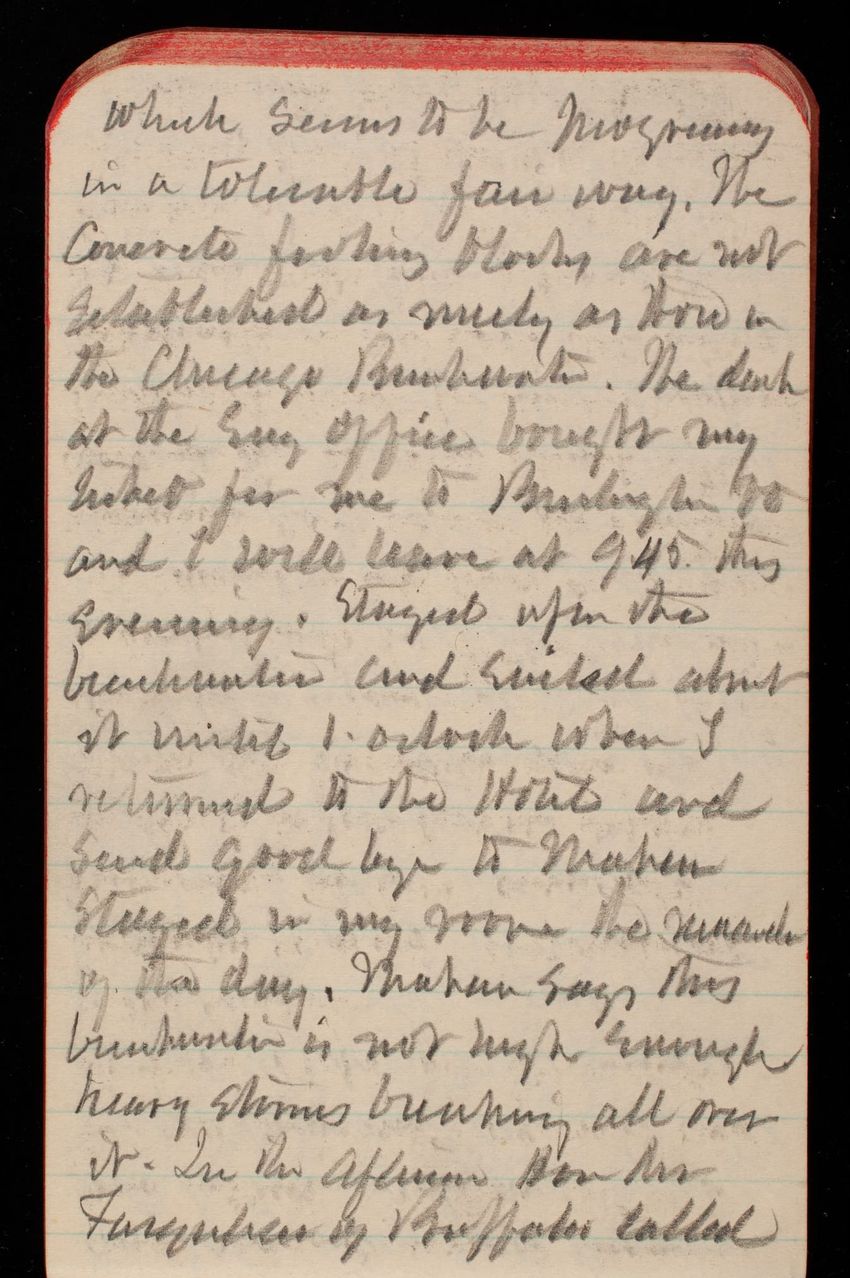 which seems to be progressing
in a tolerable fair way. The
Concrete footing blocks are not
established as nicely as those in
the Chicago Breakwater. The clerk
at the Eng Office bought my
ticket for me to Burlington
and I will leave at 9 45. this
evening. Stayed upon the
breakwater and sailed about
it until 1. oclock when I
returned to the Hotel and
said good bye to Mahan
Stayed in my room the remainder
of the day. Mahan says this
breakwater is not high enough
heavy storms breaking all over
it. In the afternoon
Farquhar of Buffalo called